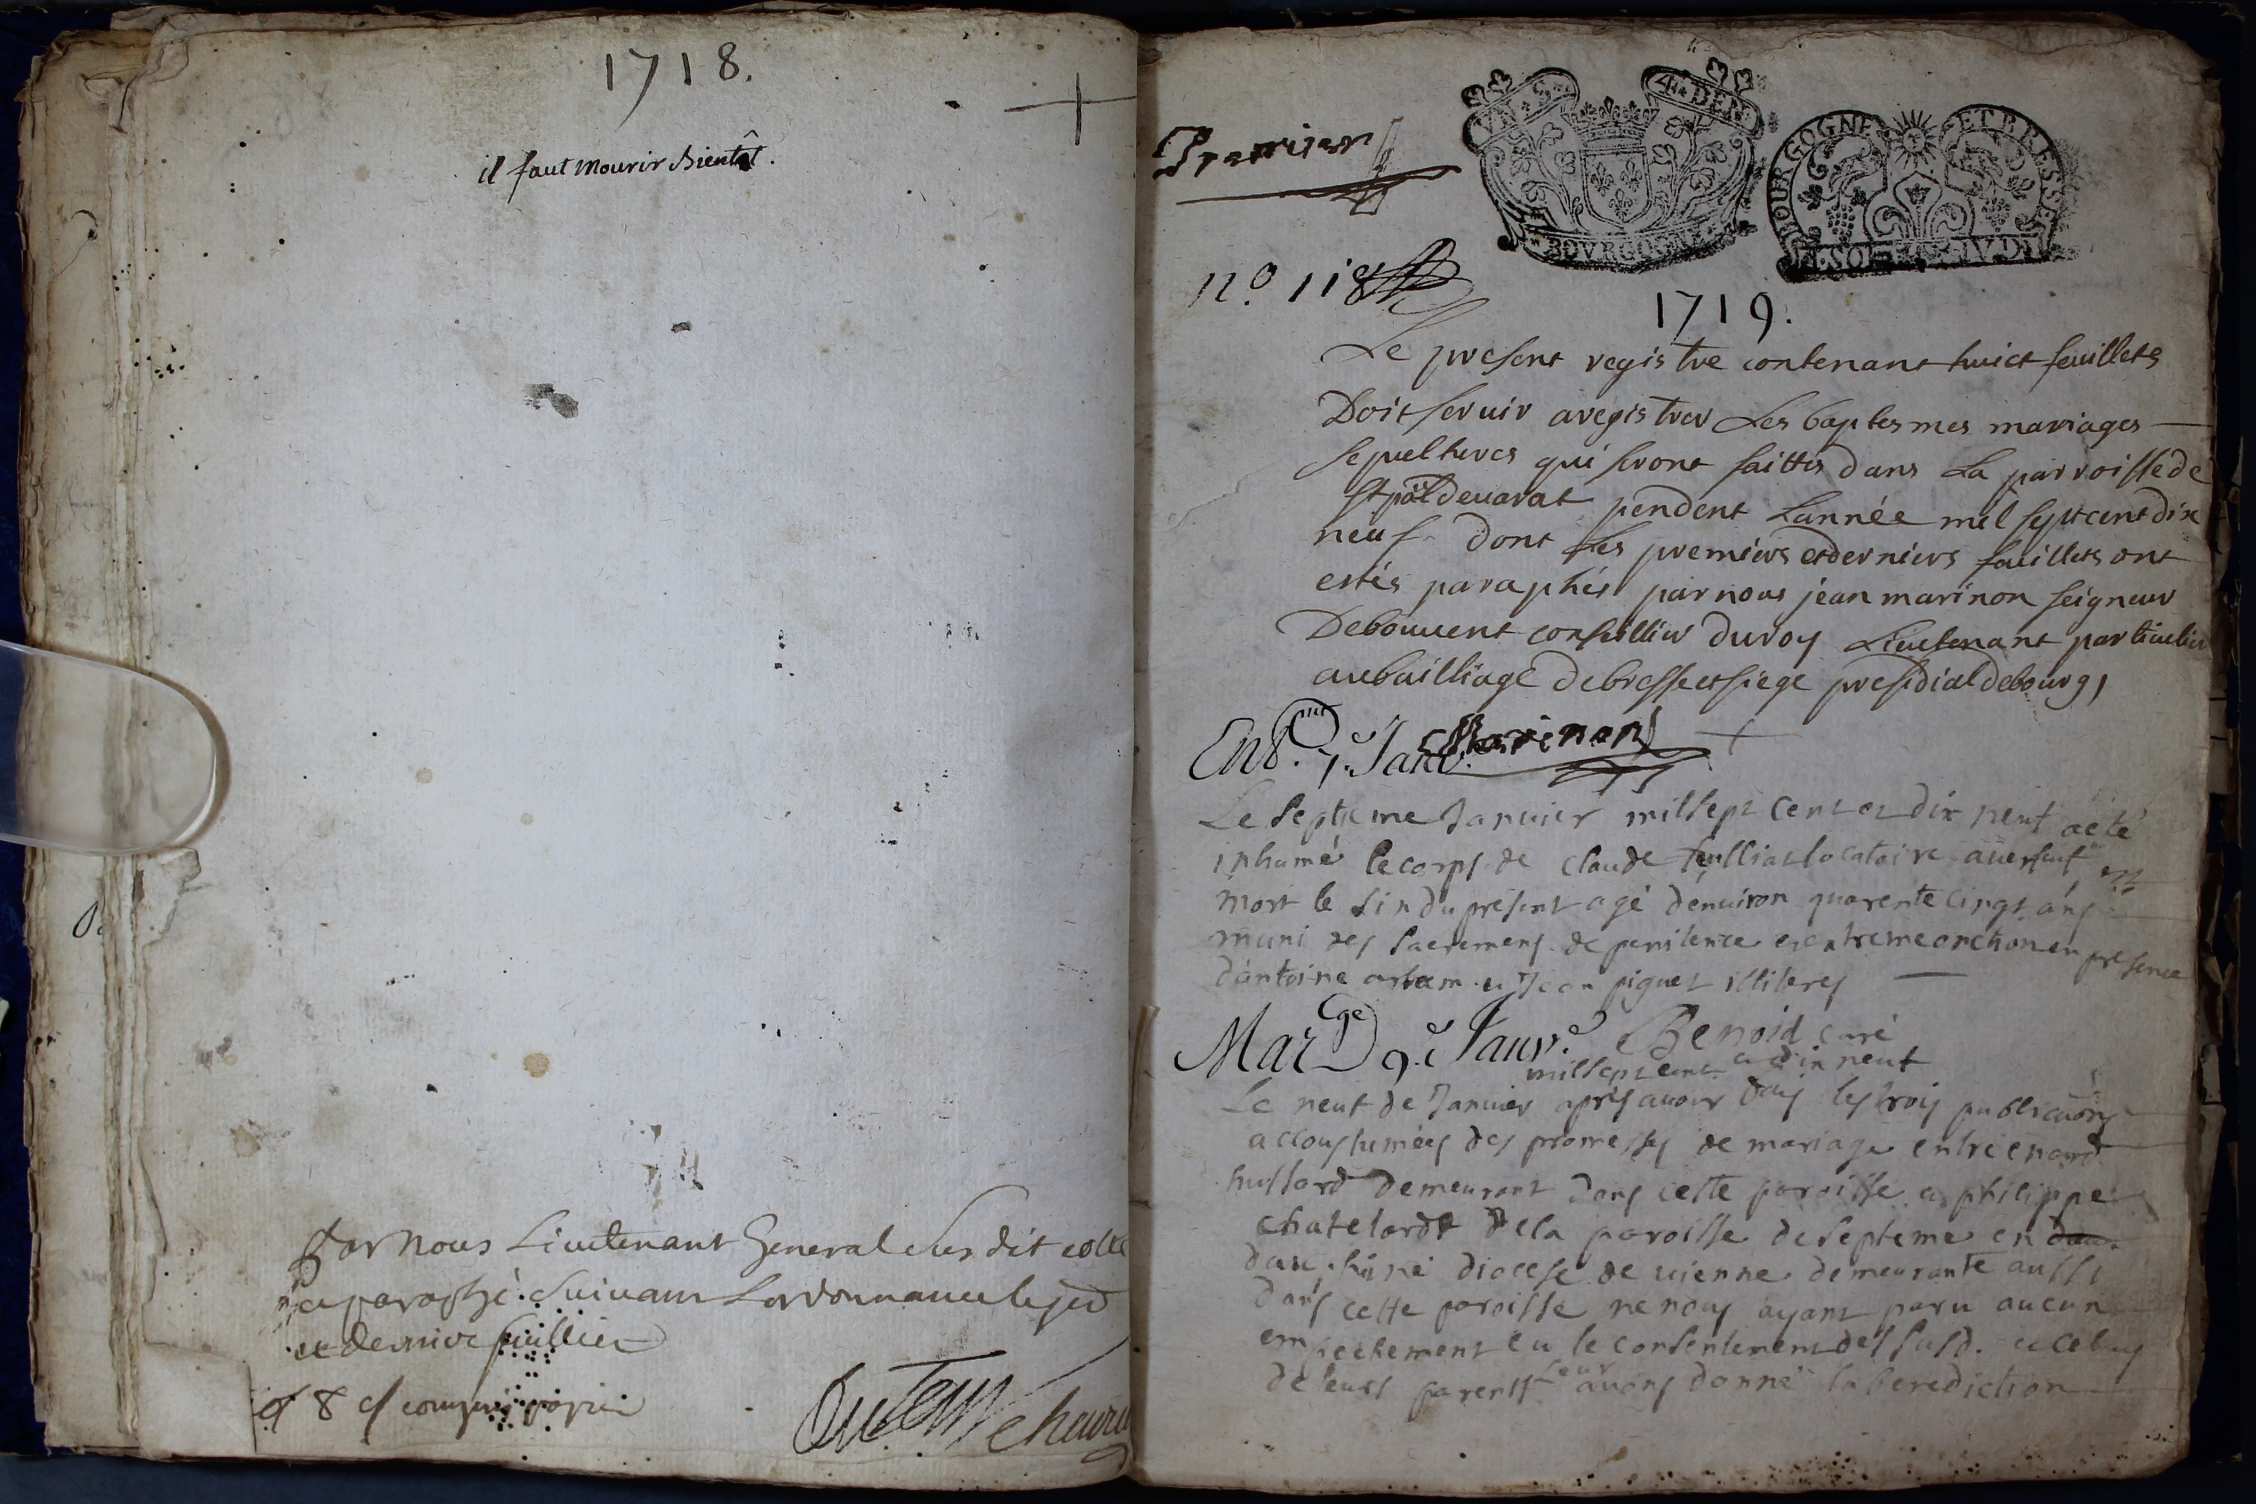 1718.
il faut mourir Bientôt.
Par nous Lieutenant General Susdit cotté
et paraphé suivant Lordonnance le per
et dernier feuillet
Premier
VN S. 4 DEN.
BOVRGOGNE
BOURGOGNE ET BRESSE
no 118
1719.
Le present registre contenant huict feuillets
Doit servir a registrer Les baptesmes mariages
sepultures qui seront faittes dans La parroisse de
St pol de varat pendent Lannée mil sept cent dix
neuf dont Les premiers et derniers feuillets ont
estés paraphés par nous jean marinon seigneur
Debouvent conseillier du roy Lieutenant particulier
au bailliage de bresse et siege presidial de bourg,
Marinon
Ent.mt 7.e Janv.
Le septieme Janvier mil sept cent et dix neuf a eté
inhumé le corps de Claude locataire
mort le sin du present agé denviron quarente cinqt ans
muni des sacremens de penitence et extreme onction en presence
dantoine et Jean piguet illiteres
Benoid curé
Mar.ge 9.e Janv.e
mil sept cent et dix neuf
Le neuf de Janvier apres avoir les trois publications
accoustumées des promesses de mariage entre
hussard demeurant dans cette paroisse et philippe
chatelardt de la paroisse de septeme en
dauphiné diocese de vienne demeurante aussi
dans cette paroisse ne nous ayant paru aucun
empechement eu le consentement des susd. et celuy
de leurs parents leur avons donné la benediction